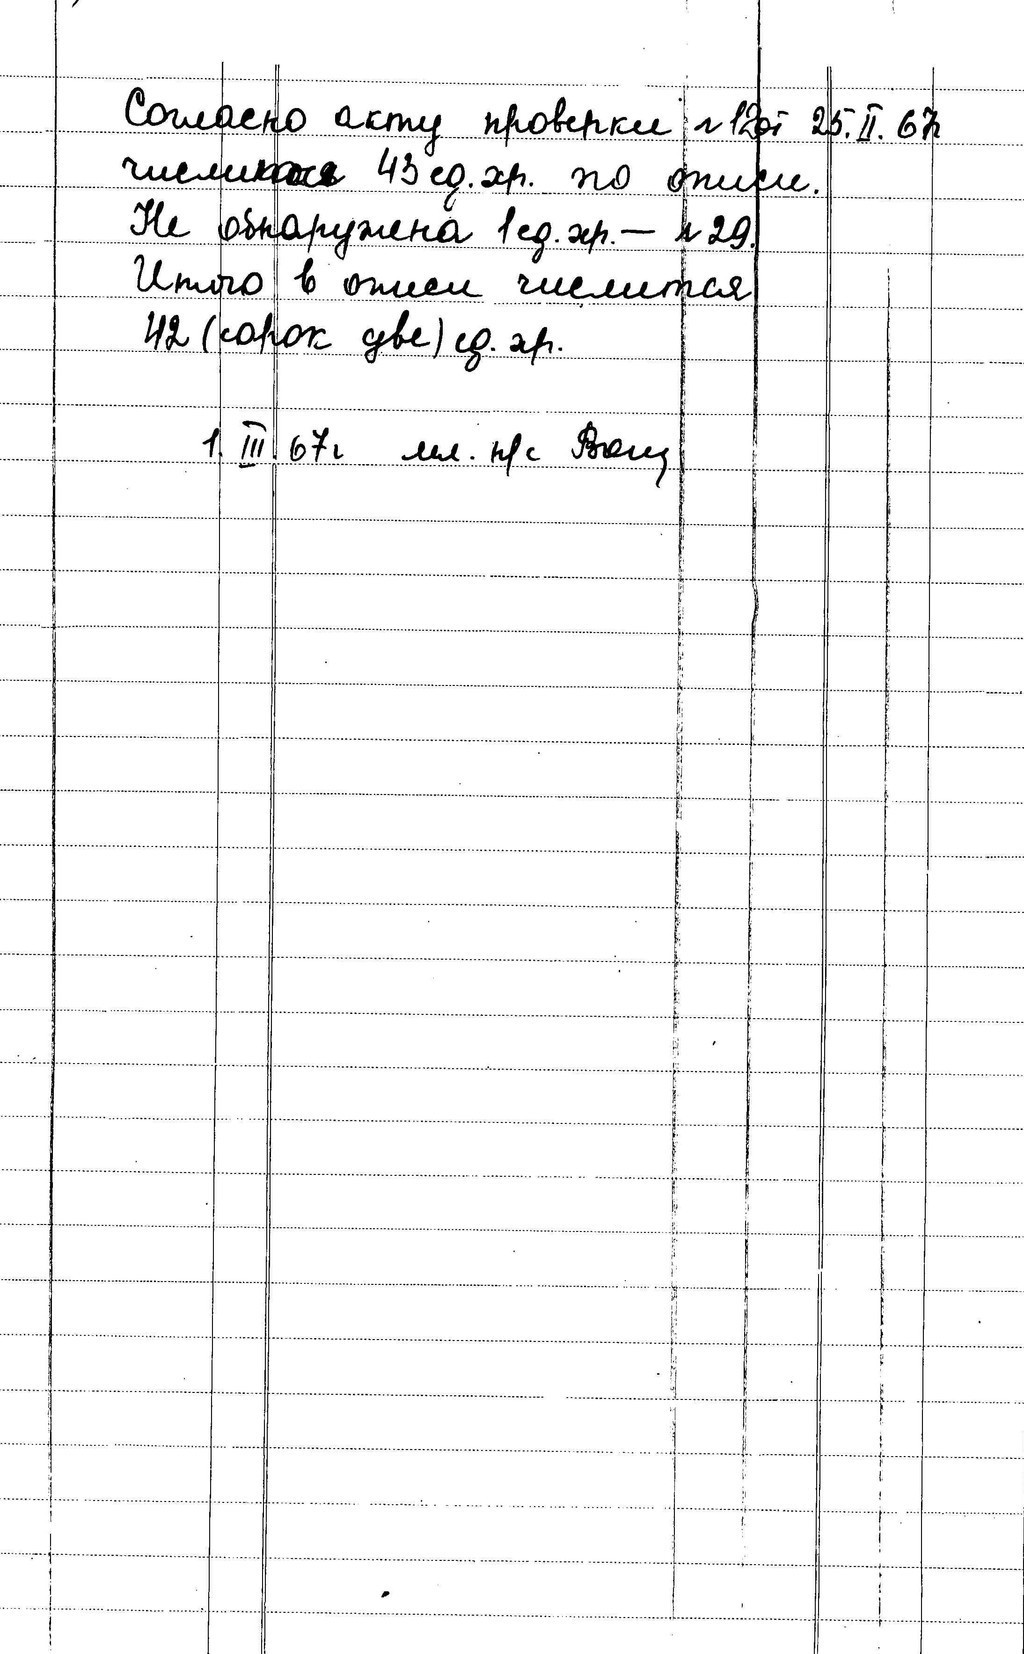 Согласно акту проверки №12 от 25.II.67г
числилось 43 ед.хр. по описи.
Не обнаружена 1 ед.хр. — №29.
Итого в описи числится
42 (сорок две) ед.хр.
1.III.67г мл. н/с